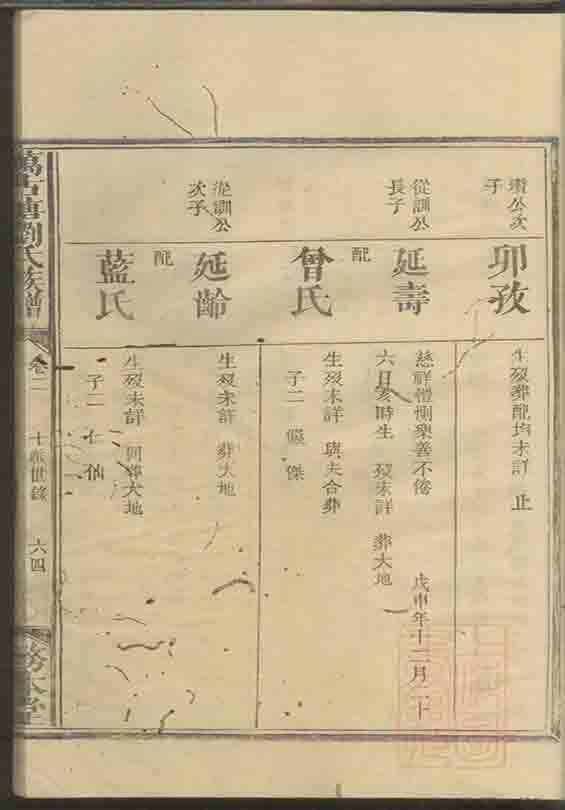 瓚公次
子
卯孜
生歿葬配均未詳 止
從訓公
長子
延壽
慈祥愷惻樂善不倦 戊申年十二月二十
六日亥時生 歿未詳 葬大地
配
曾氏
生歿未詳 與夫合葬
子二 儼 傑
從訓公
次子
延齡
生歿未詳 葬大地
配
藍氏
生歿未詳 同葬大地
子二 仁 仙
劉氏族譜
卷二
世錄
六四
務本堂